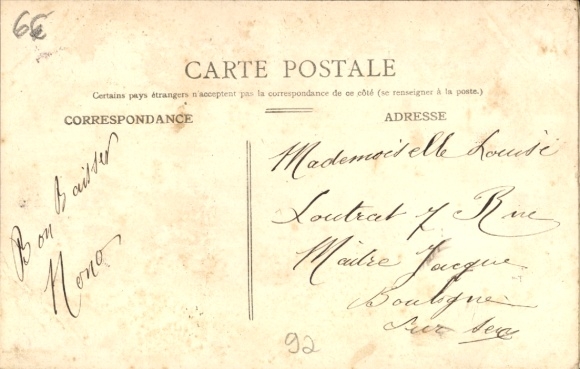 6€
CARTE POSTALE
Certains pays étrangers n'acceptent pas la correspondance de ce côté (se renseigner à la poste.)
CORRESPONDANCE
ADRESSE
Bon Baiser
Nono
Mademoiselle Louise
Loutrat 7 Rue
Maitre Jacque
Boulogne
sur sen
92